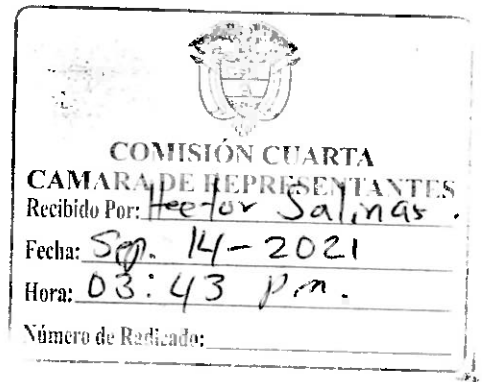 COMISIÓN CUARTA
CAMARA DE REPRESENTANTES
Recibido Por: Hector Salinas.
Fecha: Sep. 14-2021
Hora: 03:43 pm.
Número de Radicado: